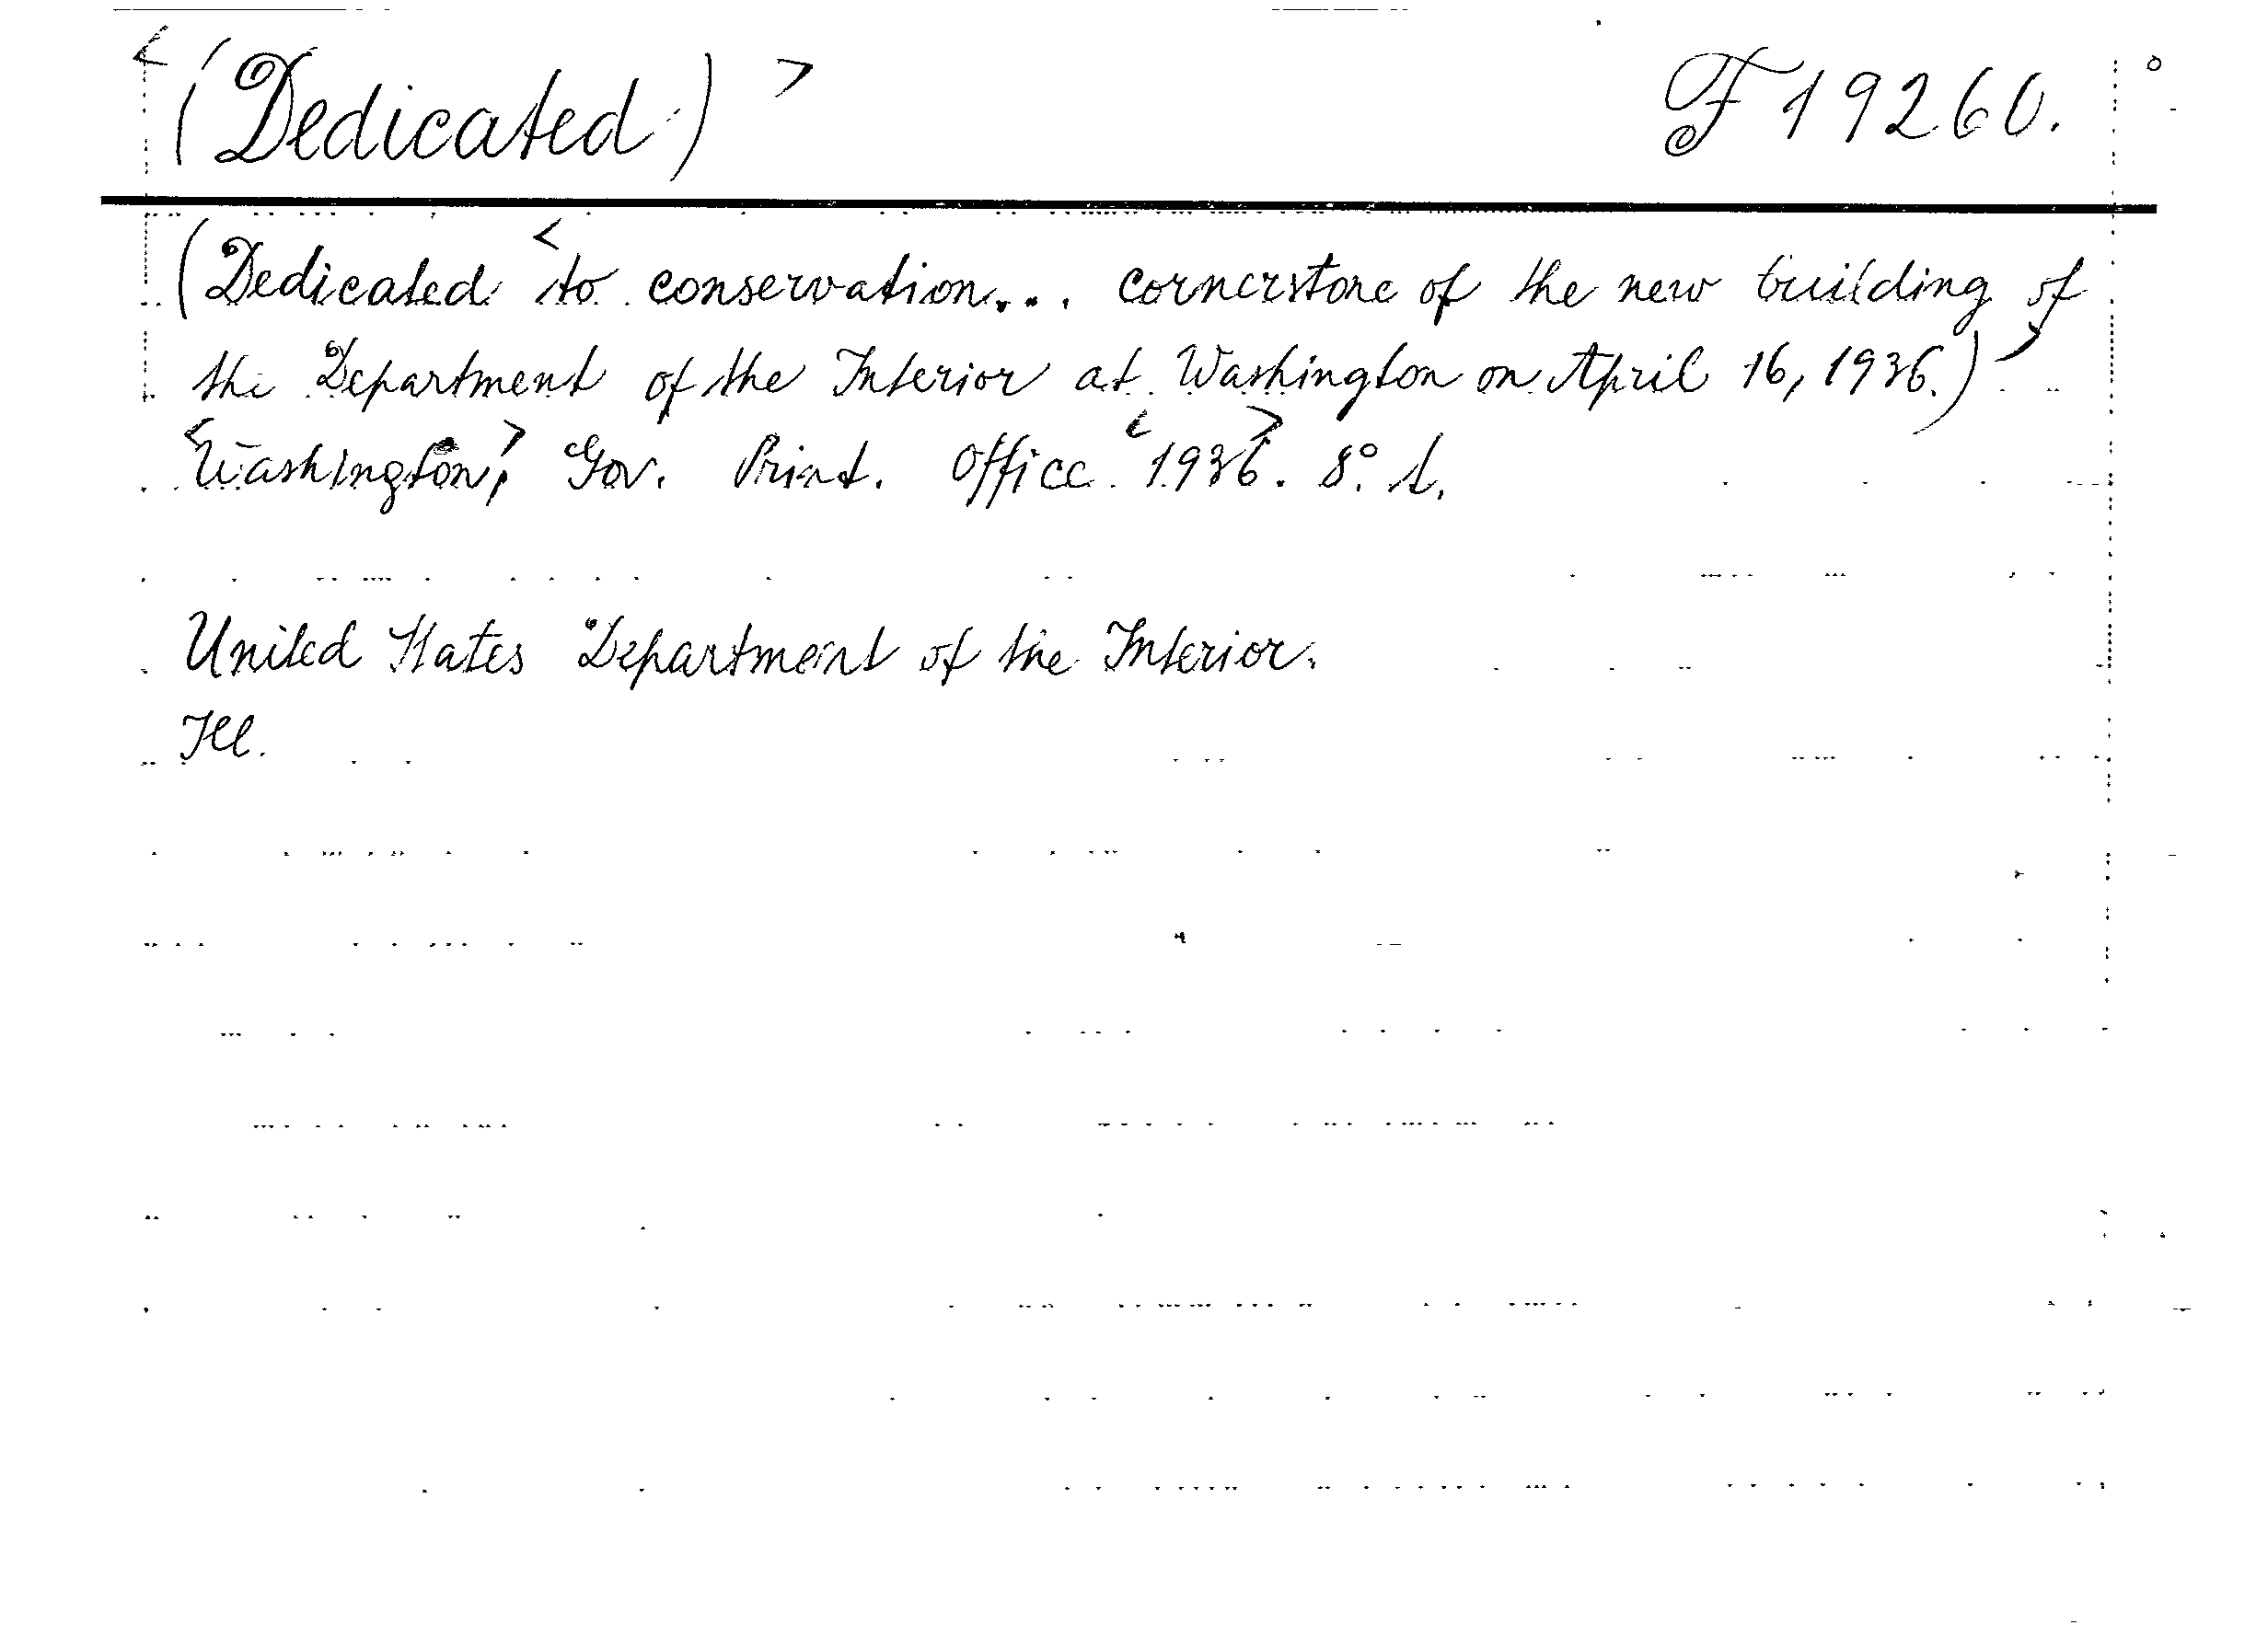 <(Dedicated)> F 19260.
(Dedicated <to conservation... cornerstone of the new building of
the Department of the Interior at Washington on April 16, 1936.)>
<Washington,> Gov. Print. Office <1936>. 8° t.
United States Department of the Interior.
Ill.